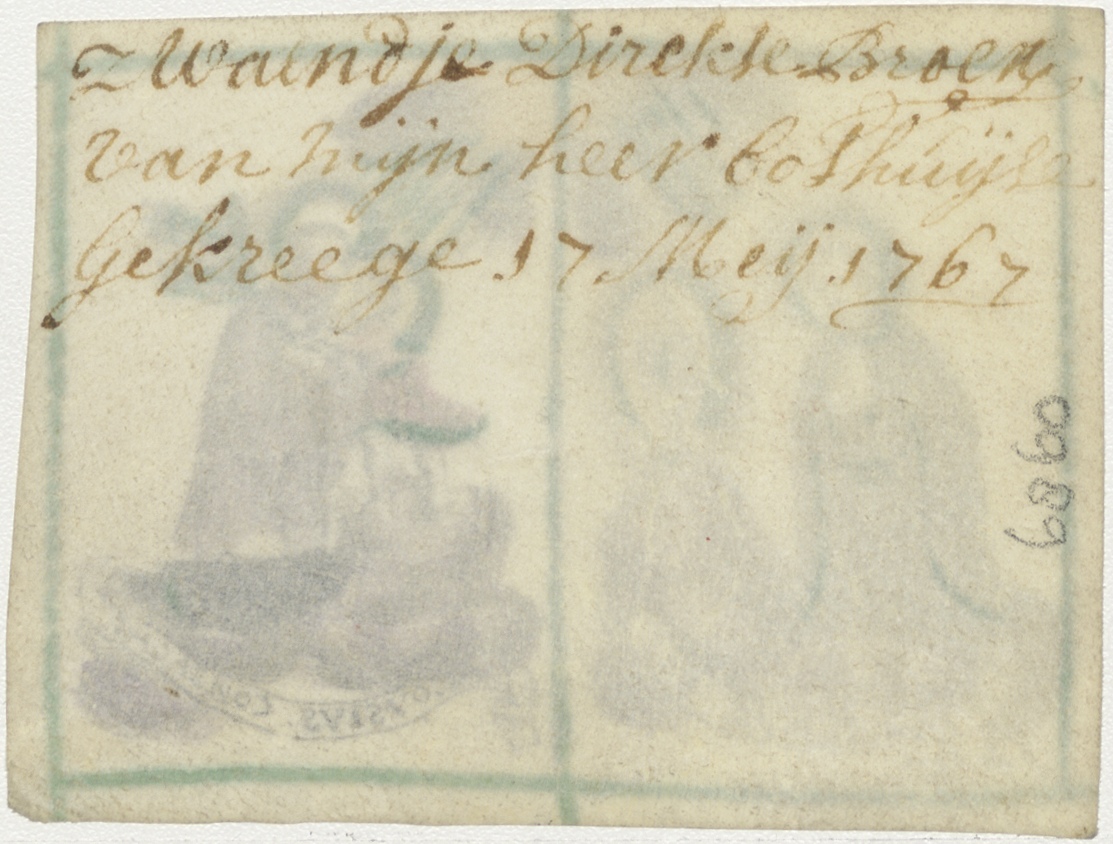 Zwaendje Dirckse Broek
van mijn heer bosthuijse
gekreege 17 Meij 1767
6890